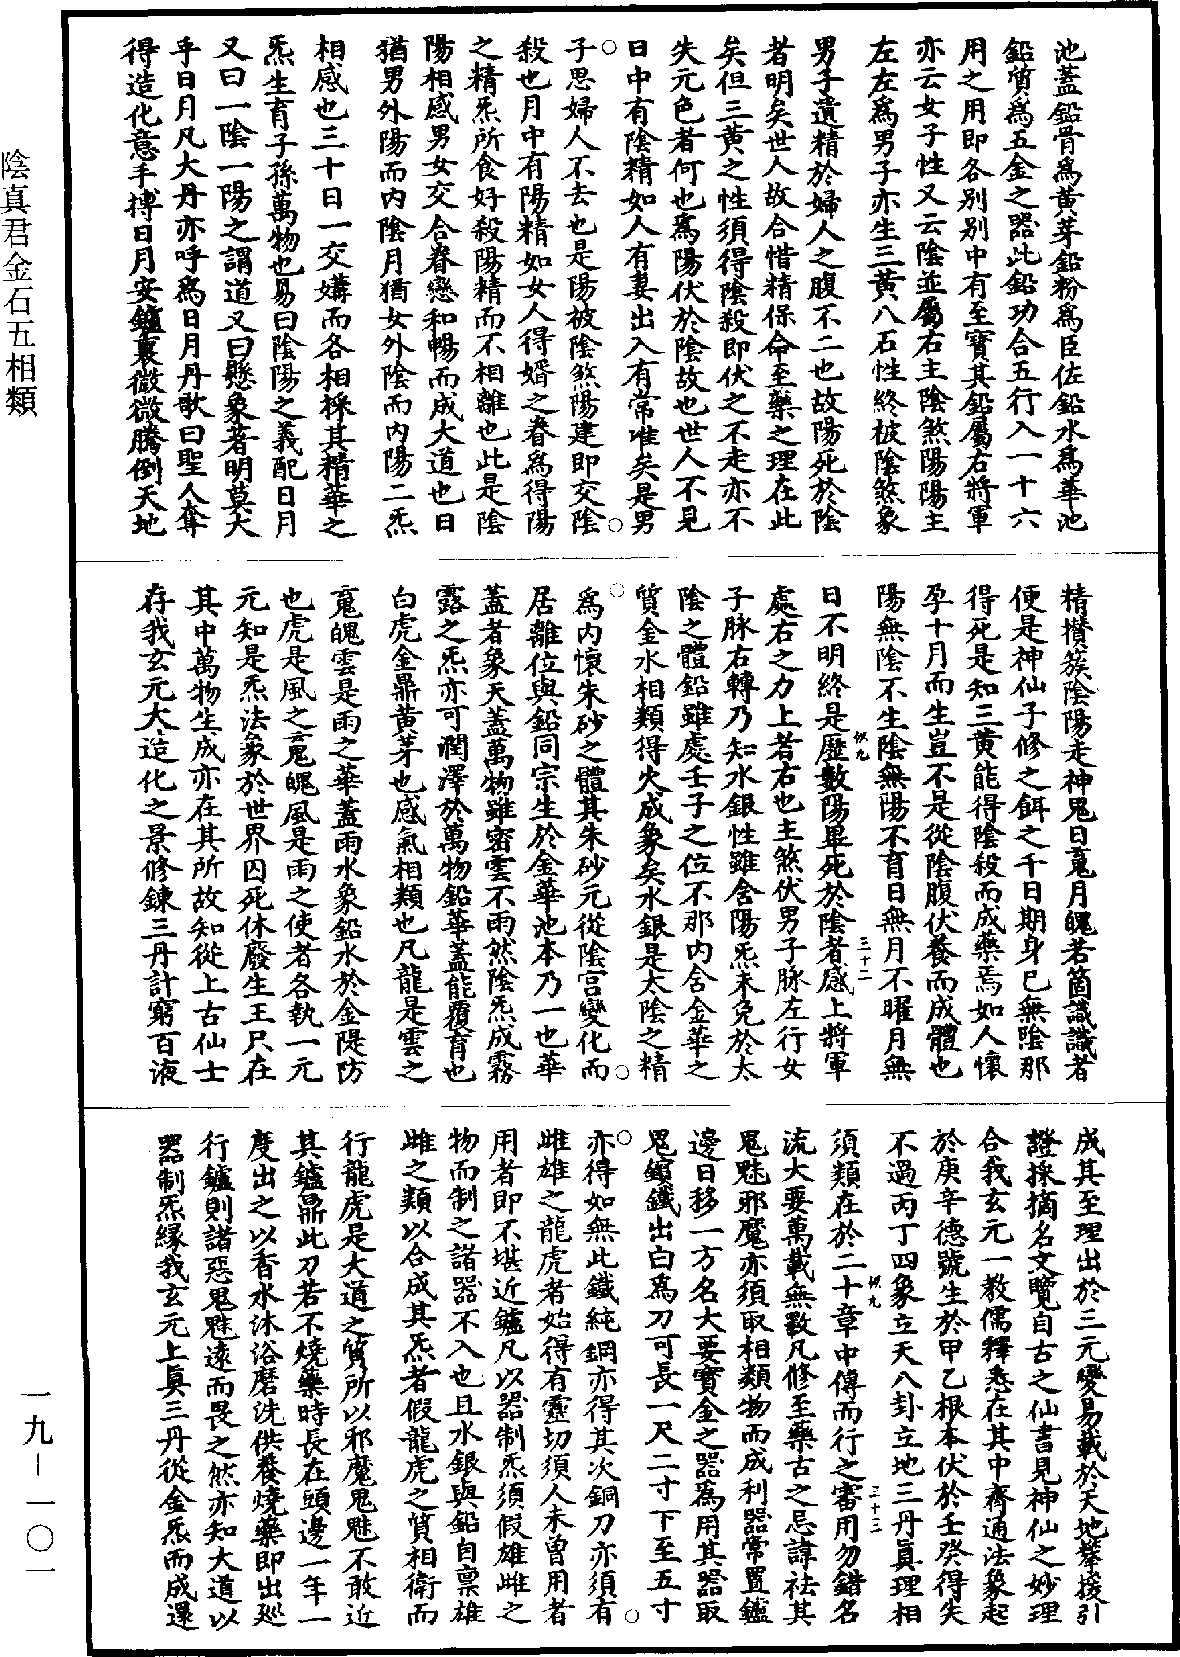 池蓋鉛骨爲黃芽鉛粉爲臣佐鉛水爲華池
鉛質爲五金之器此鉛功合五行入一十六
用之用即各別別中有至寶其鉛屬右將軍
亦云女子性又云陰並屬右主陰煞陽陽主
左左爲男子亦生三黃八石性終被陰煞象
男子遺精於婦人之腹不二也故陽死於陰
者明矣世人故合惜精保命至藥之理在此
矣但三黃之性須得陰殺即伏之不走亦不
失元色者何也爲陽伏於陰故也世人不見
日中有陰精如人有妻出入有常准矣是男
子思婦人不去也是陽被陰煞陽建即交陰
殺也月中有陽精如女人得婿之眷爲得陽
之精炁所食好殺陽精而不相離也此是陰
陽相感男女交合眷戀和暢而成大道也日
猶男外陽而内陰月猶女外陰而内陽二炁
相感也三十日一交媾而各相採其精華之
炁生育子孫萬物也易曰陰陽之義配日月
又曰一陰一陽之謂道又曰懸象著明莫大
乎日月凡大丹亦呼爲日月丹歌曰聖人奪
得造化意手搏日月安鑪裏微微騰倒天地
精攅簇陰陽走神鬼日䰟月魄若箇識識者
便是神仙子修之餌之千日期身已無陰那
得死是知三黃能得陰殺而成藥焉如人懷
孕十月而生豈不是從陰腹伏養而成體也
陽無陰不生陰無陽不育日無月不曜月無
日不明終是歷數陽畢死於陰者感上將軍
處右之力上者右也主煞伏男子脉左行女
子脉右轉乃知水銀性雖含陽炁未免於太
陰之體鉛雖處壬子之位不那内含金華之
質金水相類得火成象矣水銀是太陰之精
爲内懷朱砂之體其朱砂元從陰宫變化而
居離位與鉛同宗生於金華池本乃一也華
蓋者象天蓋萬物雖密雲不雨然陰炁成霧
露之炁亦可潤澤於萬物鉛華蓋能覆育也
白虎金鼎黃芽也感氣相類也凡龍是雲之
䰟魄雲是雨之華蓋雨水象鉛水於金隄防
也虎是風之䰟魄風是雨之使者各執一元
元知是炁法象於世界囚死休廢生王只在
其中萬物生成亦在其所故知從上古仙士
存我玄元大造化之景修鍊三丹計窮百液
成其至理出於三元變易載於天地攀援引
證採摘名文覽自古之仙書見神仙之妙理
合我玄元一教儒釋悉在其中齊通法象起
於庚辛德號生於甲乙根本伏於壬癸得失
不過丙丁四象立天八卦立地三丹眞理相
須類在於二十章中傳而行之審用勿錯名
流大要萬載無數凡修至藥古之忌諱祛其
鬼魅邪魔亦須取相類物而成利器常置鑪
邊日移一方名大要寶金之器爲用其器取
鬼鑌鐵出白爲刀可長一尺二寸下至五寸
亦得如無此鐵純鋼亦得其次銅刀亦須有
雌雄之龍虎者始得有靈切須人未曾用者
用者即不堪近鑪凡以器制炁須假雄雌之
物而制之諸器不入也且水銀與鉛自稟雄
雌之類以合成其炁者假龍虎之質相衛而
行龍虎是大道之質所以邪魔鬼魅不敢近
其鑪鼎此刀若不燒藥時長在頭邊一年一
度出之以香水沐浴磨洗供養燒藥即出廵
行鑪則諸惡鬼魅遠而畏之然亦知大道以
器制炁緣我玄元上眞三丹從金炁而成還
陰真君金石五相類
一九－一〇一